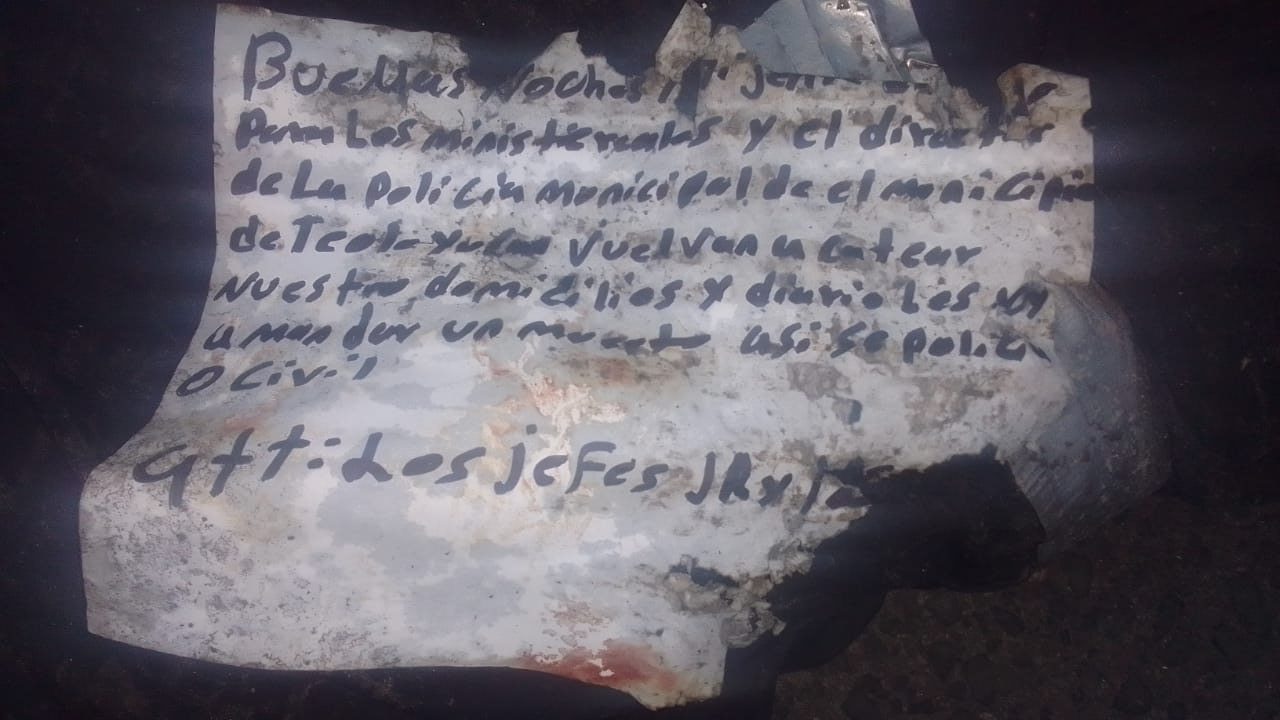 Buenas Noches
Para Los ministereales y el director
de La policia Municipal de el municipio
de Teoloyucan vuelvan a catear
Nuestro domicilios y diario Les voy
a mandar un muerto asi se polici
o civil
att: Los jefes JR y